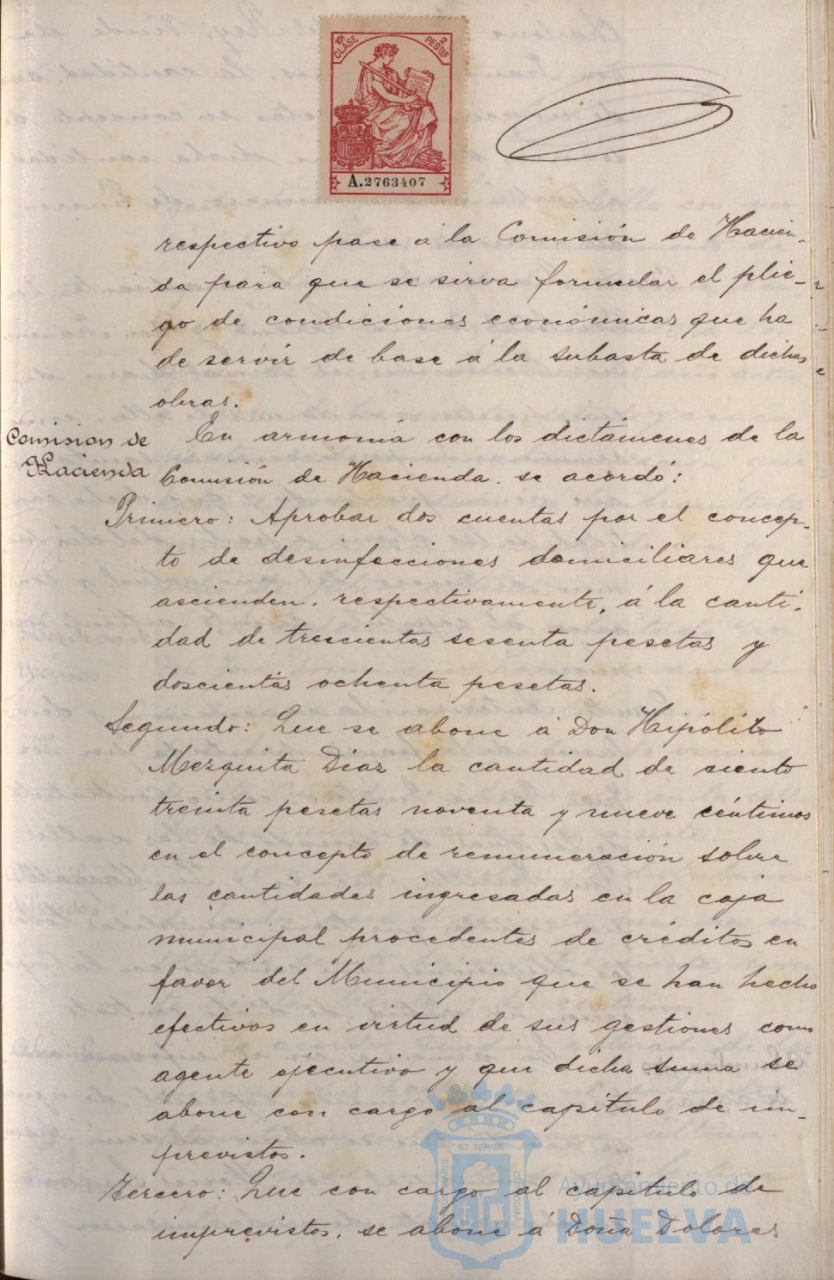 10ª CLASE 2 PESTAS
A.2763407
respectivo pase á la Comisión de Hacien-
da para que se sirva formular el plie-
go de condiciones económicas que ha
de servir de base á la subasta de dichas
obras.
Comision de
Hacienda
En armonía con los dictámenes de la
Comisión de Hacienda se acordó:
Primero: Aprobar dos cuentas por el concep-
to de desinfecciones domiciliares que
ascienden, respectivamente, á la canti-
dad de trescientas sesenta pesetas y
doscientas ochenta pesetas.
Segundo: Que se abone á Don Hipólito
Mezquita Diaz la cantidad de ciento
treinta pesetas noventa y nueve céntimos
en el concepto de remuneración sobre
las cantidades ingresadas en la caja
municipal procedentes de créditos en
favor del Municipio que se han hecho
efectivos en virtud de sus gestiones como
agente ejecutivo y que dicha suma se
abone con cargo al capitulo de im-
previstos.
Tercero: Que con cargo al capitulo de
imprevistos, se abone á Doña Dolores
Ayuntamiento de
HUELVA